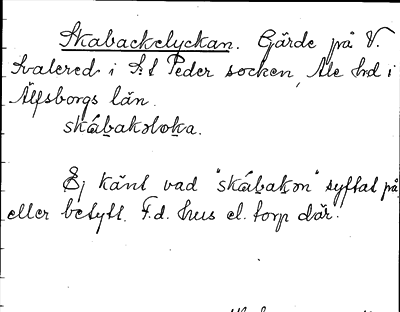 Skabackelyckan. Gärde på V.
Svalered i S:t Peder socken, Ale hrd i
Älfsborgs län.
skábakəloka.
Ej känt vad "skábakən" syftat på
eller betytt. F.d. hus el. torp där.